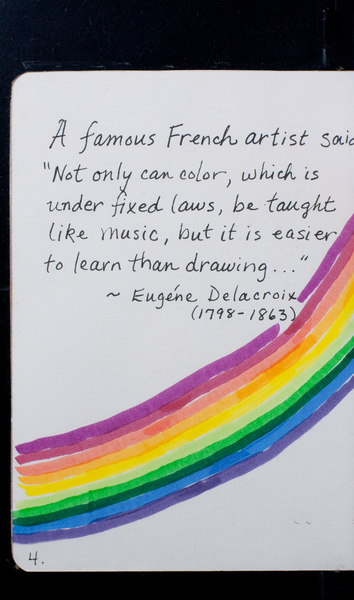 A famous French artist said
"Not only can color, which is
under fixed laws, be taught
like music, but it is easier
to learn than drawing..."
~ Eugéne Delacroix
(1798-1863)
4.